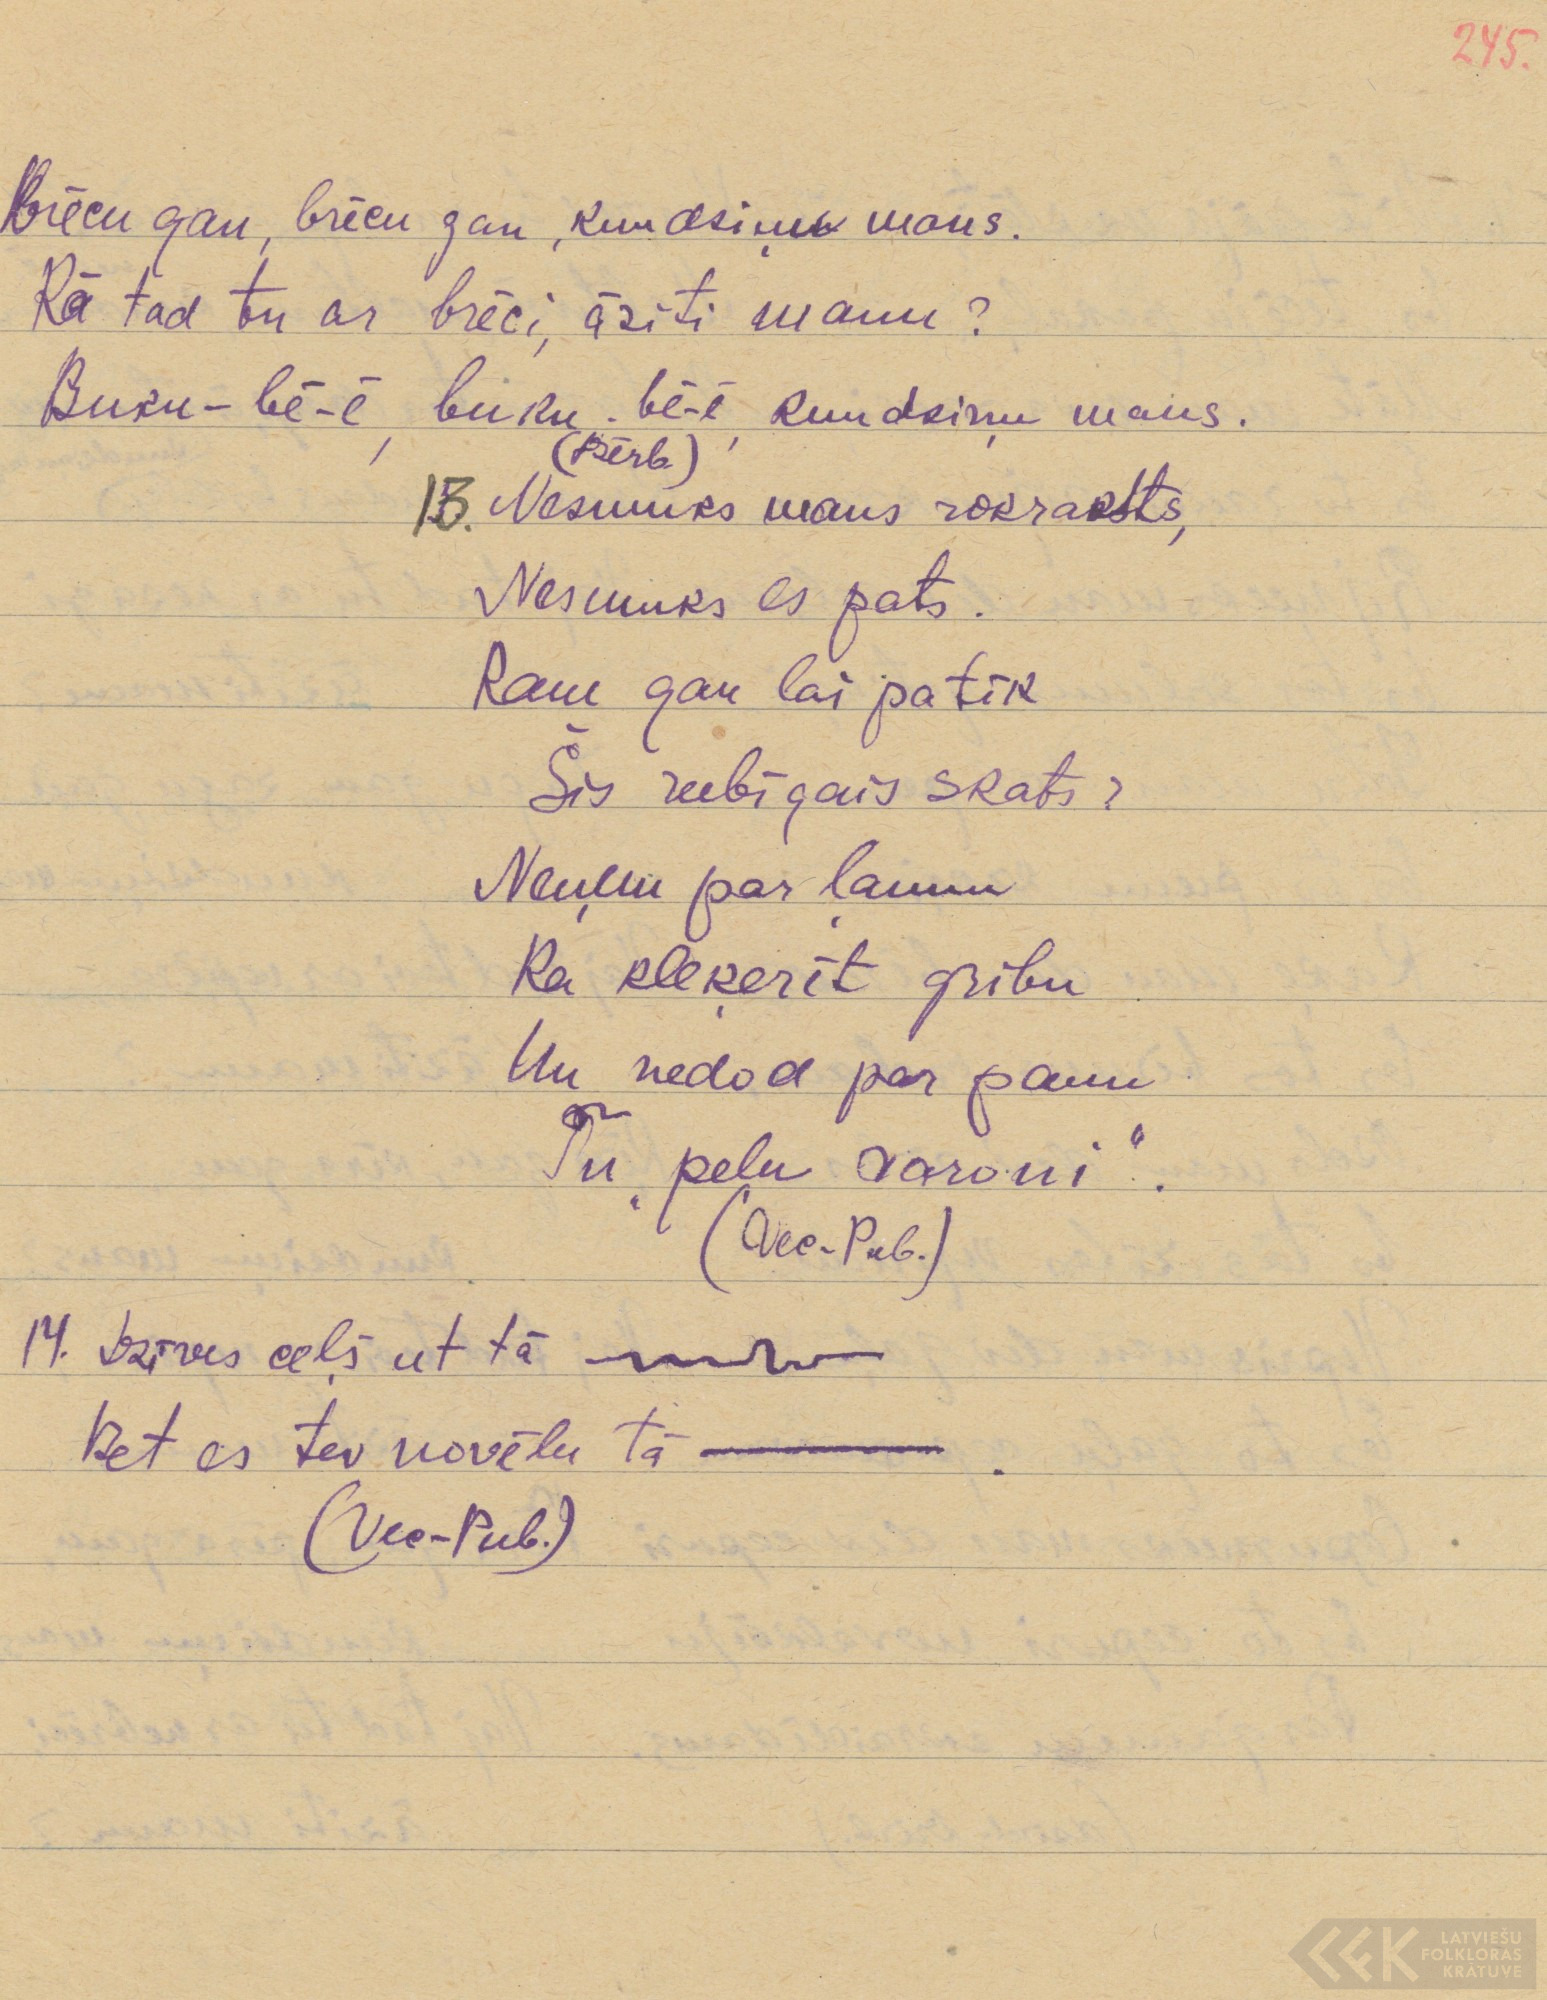 245.
Brēcu gan, brēcu gan, kundziņu mans.
Kā tad tu ar brēci, āzīti manu?
Buku-bē-ē, buku-bē-ē, kundziņu mans.
(Bērb.)
13. Nesmuks mans rokraksts,
Nesmuks es pats.
Kam gan lai patīk
Šis subīgais skats?
Neņem par ļaunu
Ka kleķerēt gribu
Un nedod par paun
Tu „pelu varoni“.
(Vec-Pub.)
14. Dzīves ceļš ut tā
Bet es tev novēlu tā .
(Vec-Pub.)
LATVIEŠU
FOLKLORAS
KRĀTUVE